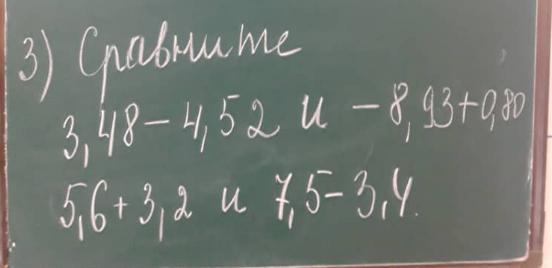 3) Сравните
3,48 - 4,52 и - 8,93 + 0,80
5,6 + 3,2 и 7,5 - 3,4.